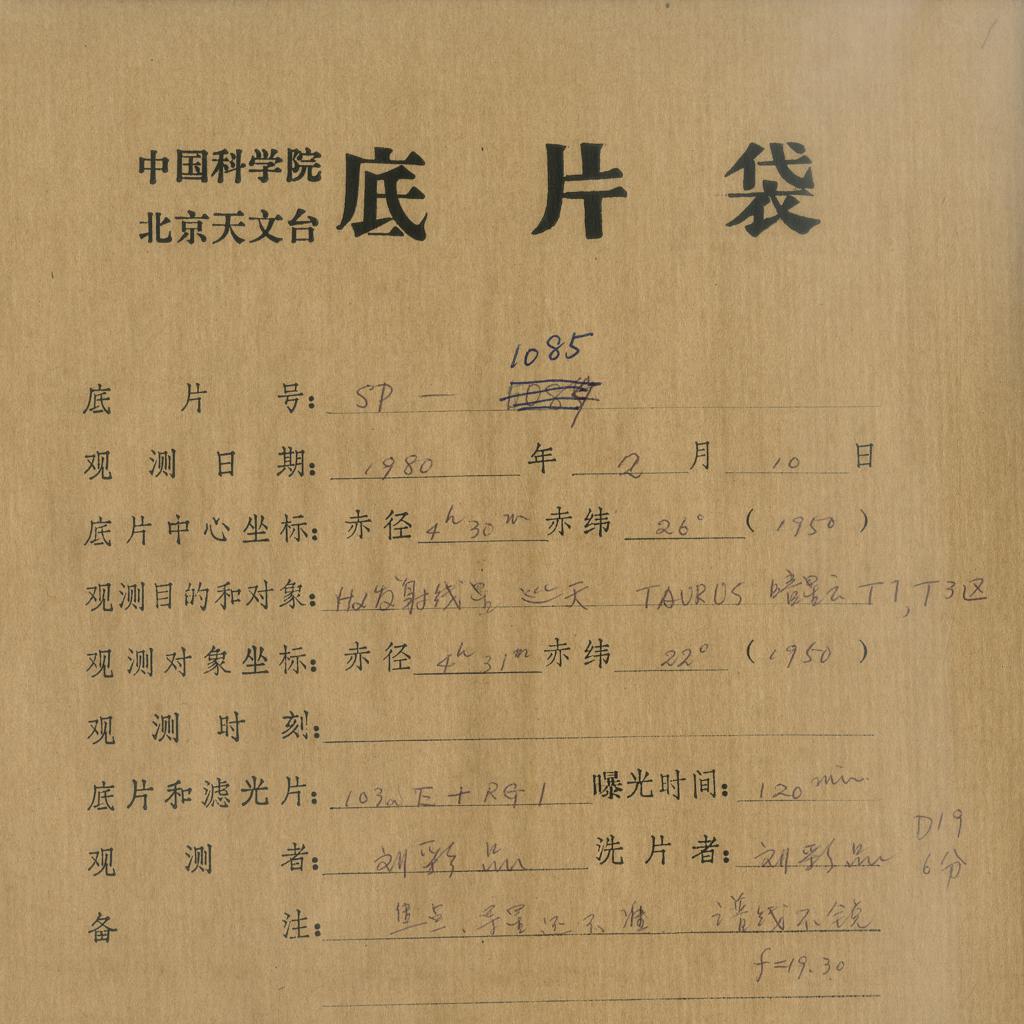 中国科学院
北京天文台 底片袋
1085
底片号: SP —
观测日期: 1980 年 2 月 10 日
底片中心坐标: 赤径 4h 30m 赤纬 26° (1950)
观测目的和对象: Hα发射线星 巡天 TAURUS 暗星云 T1, T3区
观测对象坐标: 赤径 4h 31m 赤纬 22° (1950)
观测时刻:
底片和滤光片: 103a E + RG1 曝光时间: 120 min
D19
观测者: 刘彩品 洗片者: 刘彩品 6分
备注: 焦点、导星还不准 谱线不锐
f=19.30